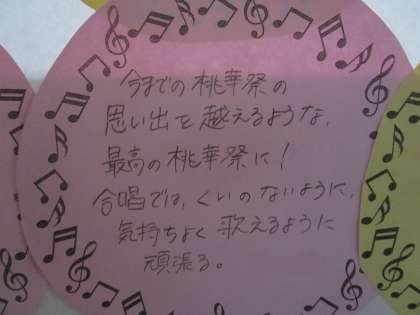 今までの桃華祭の
思い出を越えるような、
最高の桃華祭に!
合唱では、くいのないように、
気持ちよく歌えるように
頑張る。